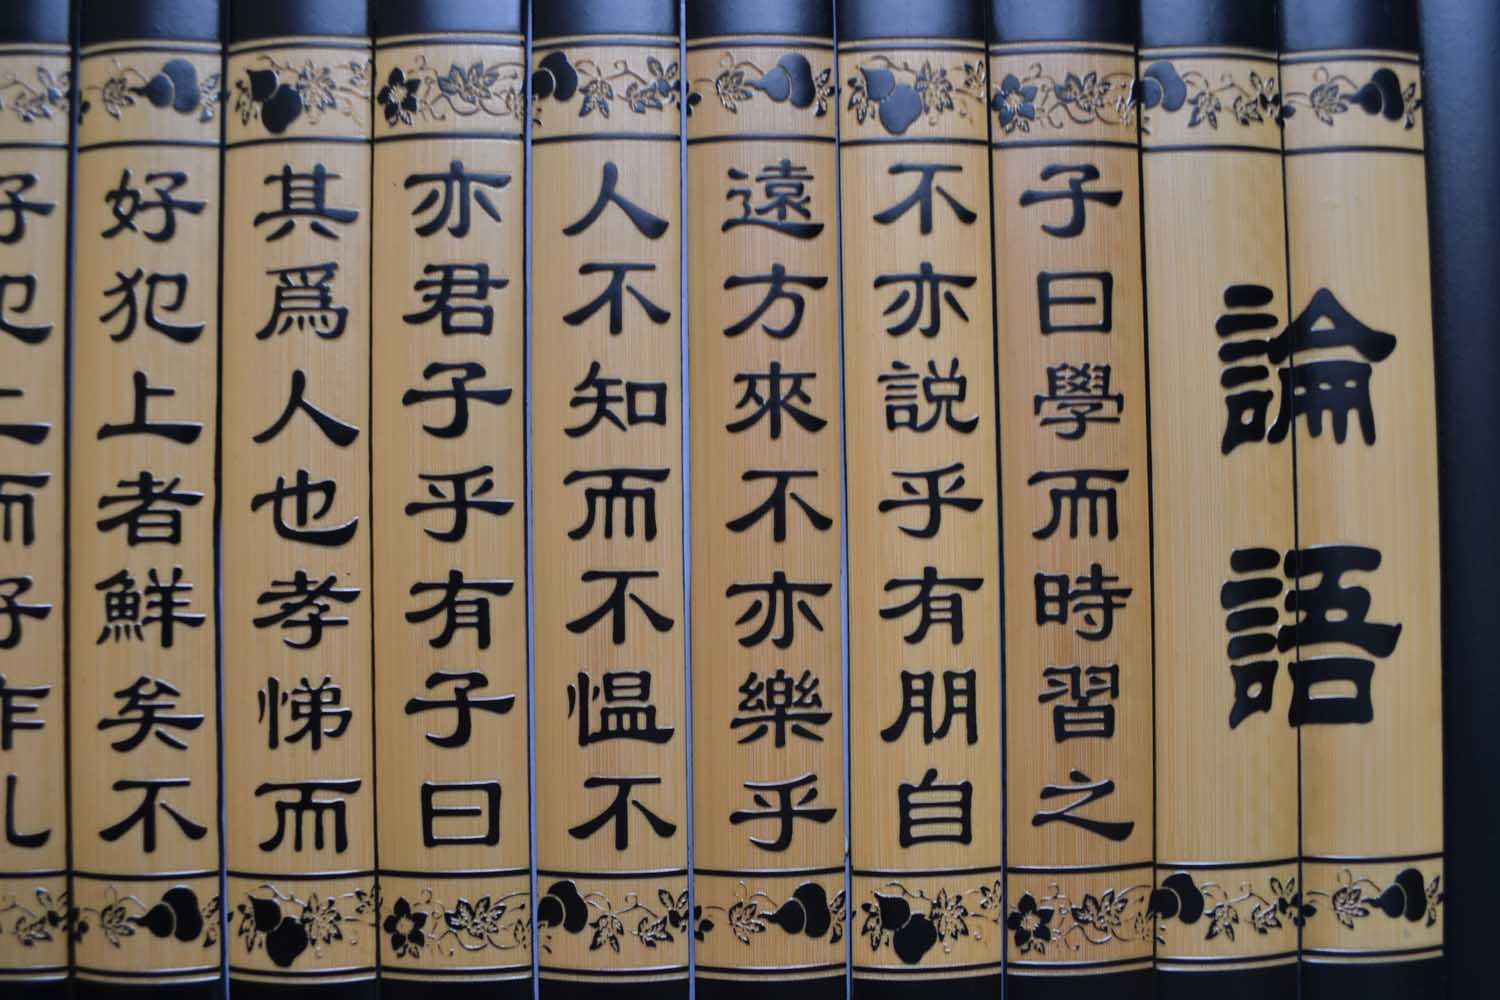 論語
子曰學而時習之
不亦説乎有朋自
遠方來不亦樂乎
人不知而不愠不
亦君子乎有子曰
其爲人也孝悌而
好犯上者鮮矣不
好犯上而好作